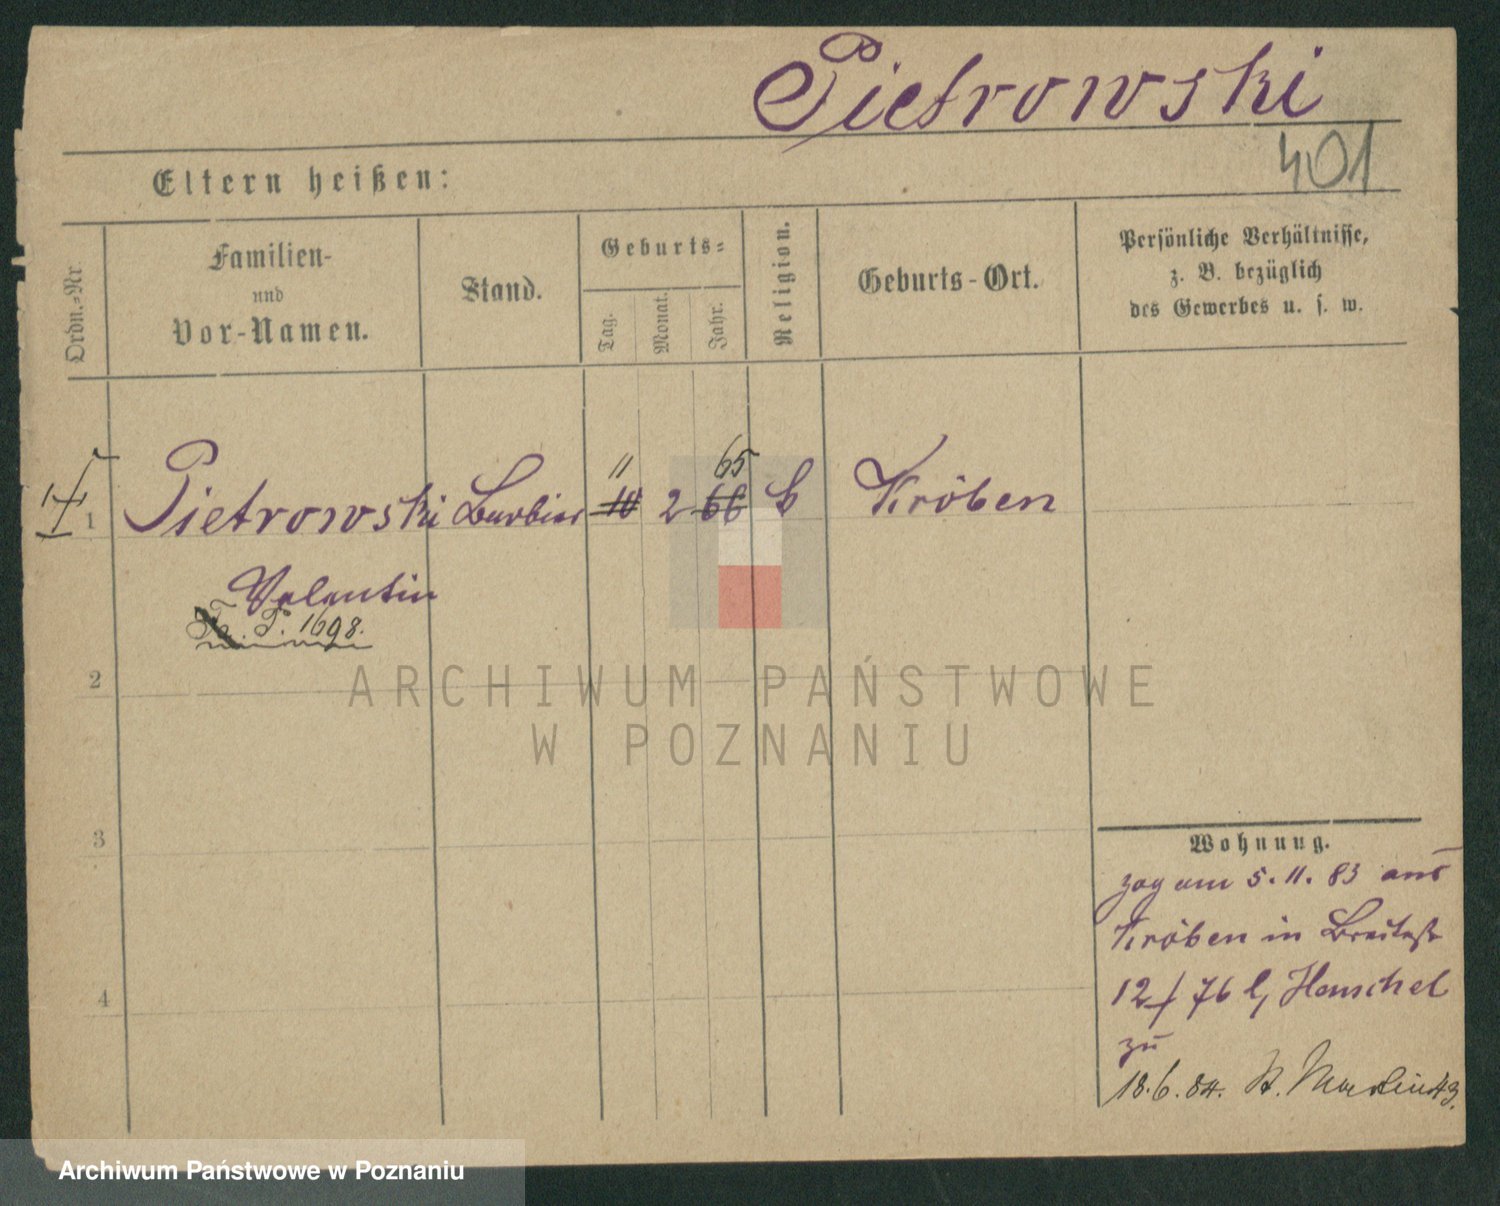 Pietrowski
401
Eltern heißen:
Ordn.-Nr.
Familien-
und
Vor-Namen.
Stand.
Geburts-
Tag.
Monat.
Jahr.
Religion.
Geburts-Ort.
Persönliche Verhältnisse,
z. B. bezüglich
des Gewerbes u. s. w.
11 65
1 Pietrowski Barbier 10 2 66 k Kröben
Valentin
T. 1698.
2
ARCHIWUM PAŃSTWOWE
W POZNANIU
3
Wohnung.
zog am 5.11.83 aus
Kröben in Breitestr
12/76 b, Henschel
zu
4
18.6.84. St. Martin 43.
Archiwum Państwowe w Poznaniu